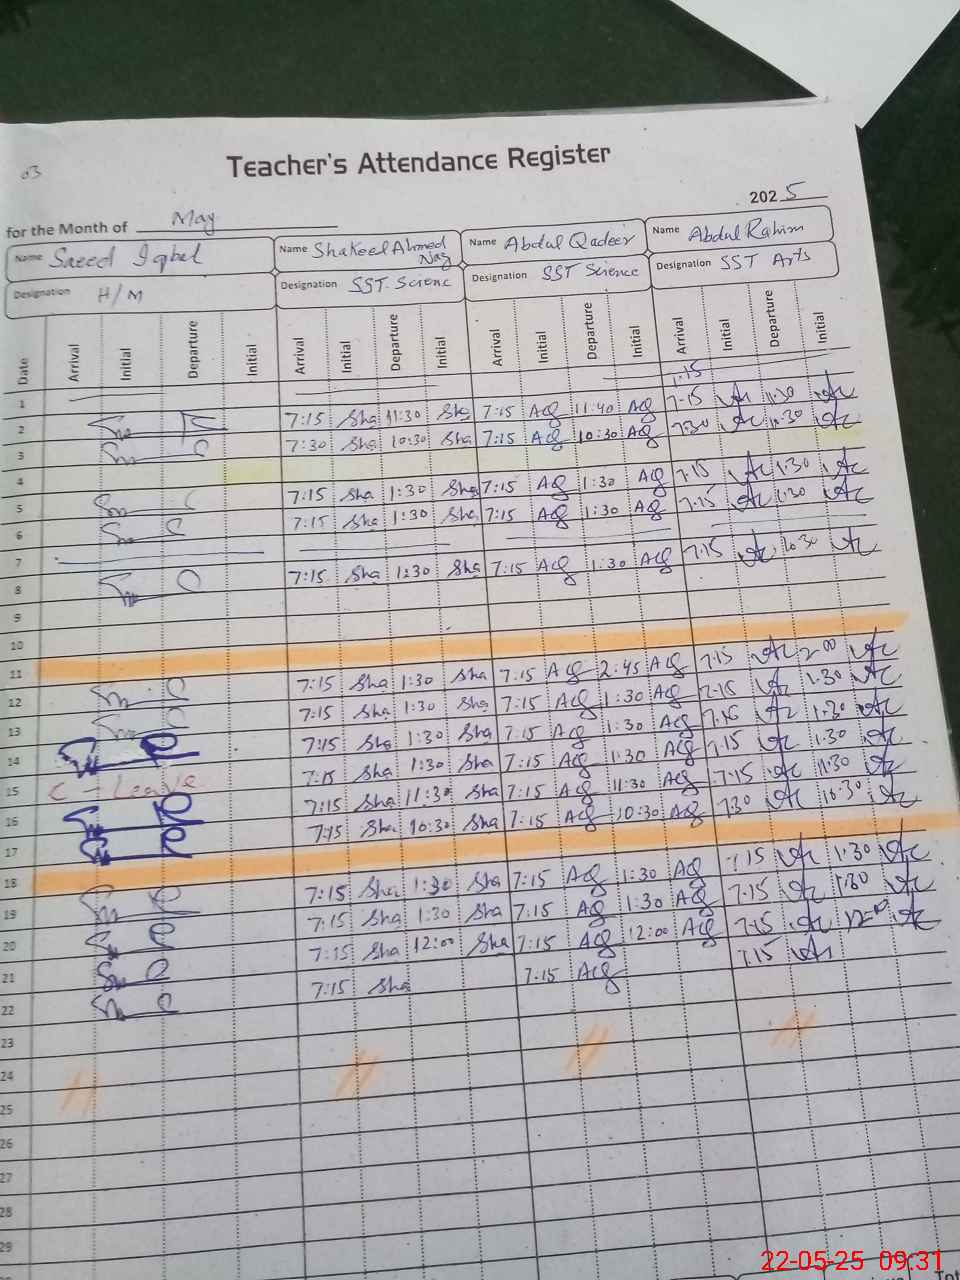 03
Teacher's Attendance Register
2025
for the Month of May
Name Saeed Iqbal Name Shakeel Ahmed Naz Name Abdul Qadeer Name Abdul Rahim
Designation H/M Designation SST. Scienc Designation SST Science Designation SST Arts
Date Arrival Initial Departure Initial Arrival Initial Departure Initial Arrival Initial Departure Initial Arrival Initial Departure Initial
1 7.15
2 7:15 Sha 11:30 Sha 7:15 AQ 11:40 AQ 7.15 11.30
3 7:30 Sha 10:30 Sha 7:15 AQ 10:30 AQ 7.30 10.30
4
5 7:15 Sha 1:30 Sha 7:15 AQ 1:30 AQ 7.15 1.30
6 7:15 Sha 1:30 Sha 7:15 AQ 1:30 AQ 7.15 1.30
7
8 7:15 Sha 1:30 Sha 7:15 AQ 1:30 AQ 7.15
9
10
11
12 7:15 Sha 1:30 Sha 7:15 AQ 2:45 AQ 7.15 2.00
13 7:15 Sha 1:30 Sha 7:15 AQ 1:30 AQ 7.15 1.30
14 7:15 Sha 1:30 Sha 7:15 AQ 1:30 AQ 7.15 1.30
15 C - Leave 7:15 Sha 1:30 Sha 7:15 AQ 1:30 AQ 7.15 1.30
16 7:15 Sha 11:30 Sha 7:15 AQ 11:30 AQ 7.15 11.30
17 7:15 Sha 10:30 Sha 7:15 AQ 10:30 AQ 7.30 10.30
18
19 7:15 Sha 1:30 Sha 7:15 AQ 1:30 AQ 7.15 1.30
20 7:15 Sha 1:30 Sha 7:15 AQ 1:30 AQ 7.15 1.30
21 7:15 Sha 12:00 Sha 7:15 AQ 12:00 AQ 7.15 12.00
22 7:15 Sha 7:15 AQ 7.15
23
24
25
26
27
28
29
22-05-25 09:31